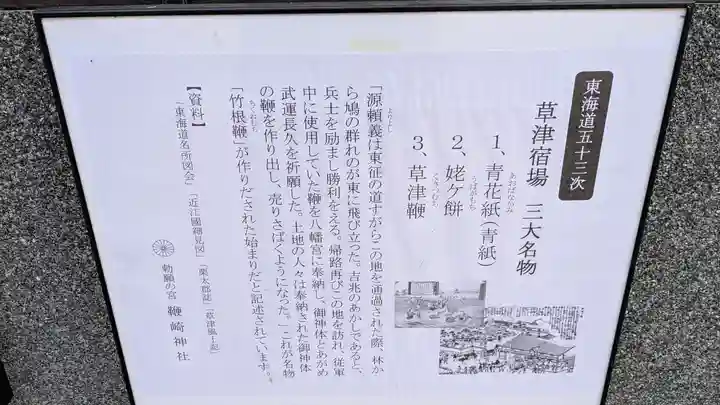 東海道五十三次
草津宿場 三大名物
1、青花紙(青紙)
あおばながみ
2、姥ヶ餅
うばがもち
3、草津鞭
くさつむち
「源頼義は東征の道すがらこの地を通過された際、林か
よりよし
ら鳩の群れのが東に飛び立った。吉兆のあかしであると、
兵士を励まし勝利をえる。帰路再びこの地を訪れ、従軍
中に使用していた鞭を八幡宮に奉納し、御神体とあがめ
武運長久を祈願した。土地の人々は奉納された御神体
の鞭を作り出し、売りさばくようになった。」これが名物
「竹根鞭」が作りだされた始まりだと記述されています。
ちくねむち
【資料】
「東海道名所図会」「近江國細見図」「栗太郡誌」「草津風土記」
勅願の宮 鞭崎神社